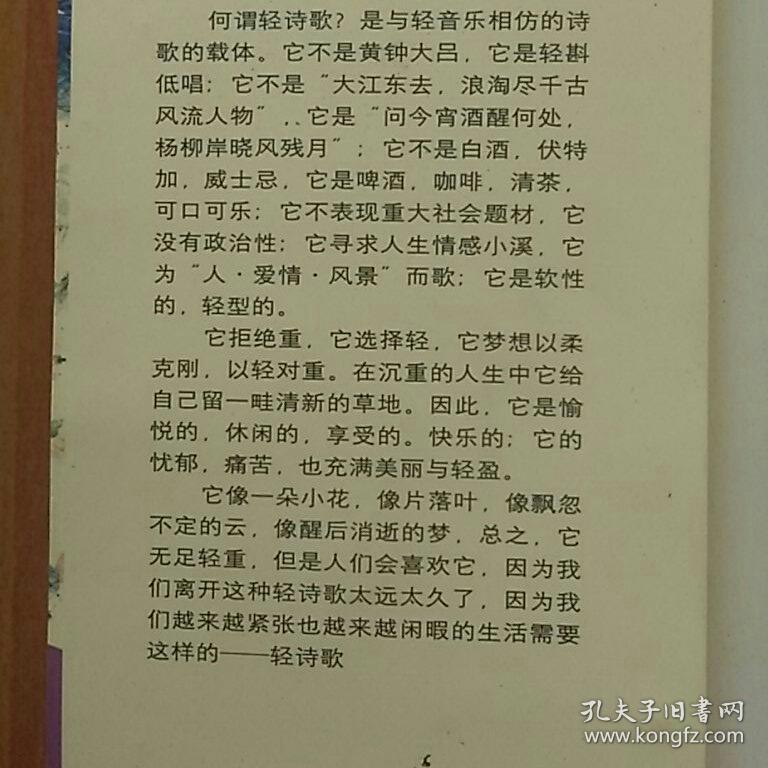 何谓轻诗歌？是与轻音乐相仿的诗
歌的载体。它不是黄钟大吕，它是轻斟
低唱；它不是“大江东去，浪淘尽千古
风流人物”，它是“问今宵酒醒何处，
杨柳岸晓风残月”；它不是白酒，伏特
加，威士忌，它是啤酒，咖啡，清茶，
可口可乐；它不表现重大社会题材，它
没有政治性；它寻求人生情感小溪，它
为“人·爱情·风景”而歌；它是软性
的，轻型的。
它拒绝重，它选择轻，它梦想以柔
克刚，以轻对重。在沉重的人生中它给
自己留一畦清新的草地。因此，它是愉
悦的，休闲的，享受的。快乐的；它的
忧郁，痛苦，也充满美丽与轻盈。
它像一朵小花，像片落叶，像飘忽
不定的云，像醒后消逝的梦，总之，它
无足轻重，但是人们会喜欢它，因为我
们离开这种轻诗歌太远太久了，因为我
们越来越紧张也越来越闲暇的生活需要
这样的——轻诗歌
孔夫子旧书网
www.kongfz.com